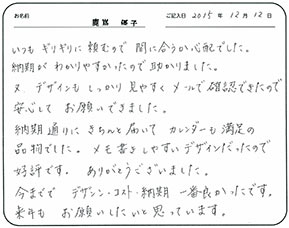 お名前 鹿嶌 郁子 ご記入日 2015年12月12日
いつも ギリギリに頼むので 間に合うか心配でした。
納期が わかりやすかったので 助かりました。
又 デザインも しっかり 見やすく メールで確認できたので
安心して お願いできました。
納期通りに きちんと届いて カレンダーも満足の
品物でした。 メモ書きしやすいデザインだったので
好評です。 ありがとうございました。
今までで デザイン・コスト・納期 一番良かったです。
来年も お願いしたいと思っています。